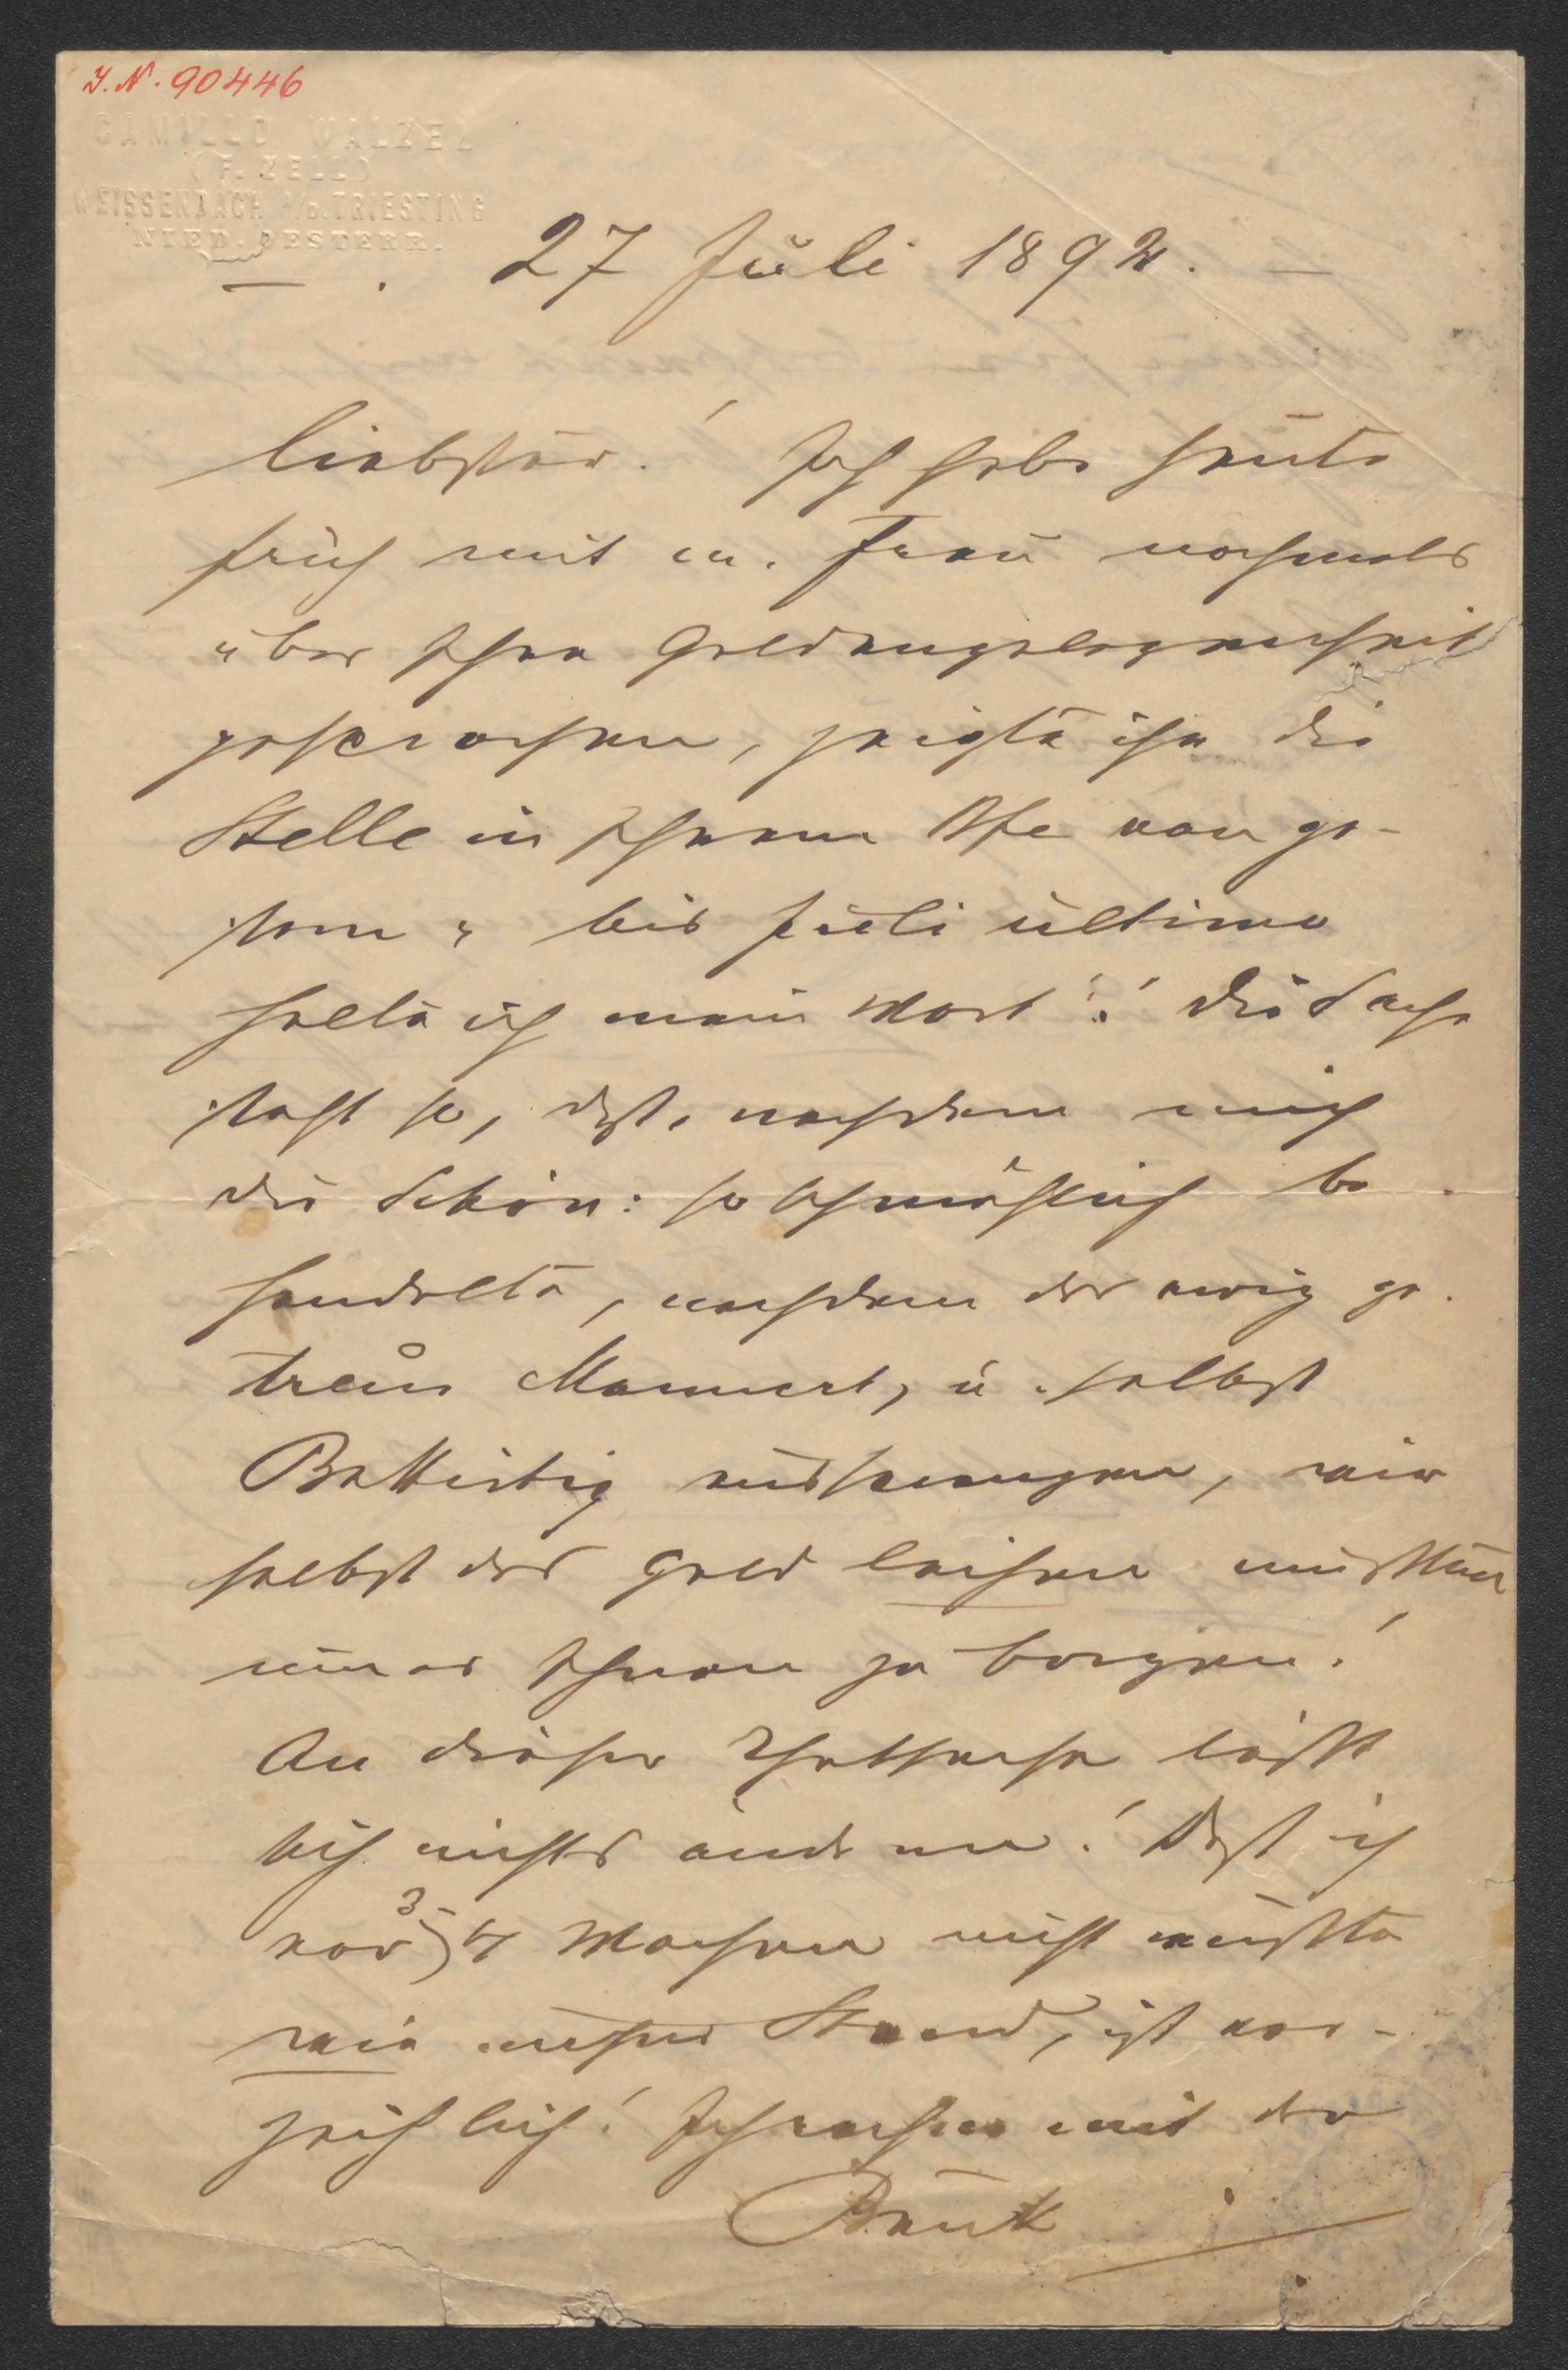 I.N. 90446
CAMILLO WALZEL
(F. ZELL)
WEISSENBACH a/D. TRIESTING
NIED. OESTERR.
27 Juli 1892.
Liebster! Ich habe heute
früh mit m. Frau nochmals
über Ihre Geldangelegenheit
gesprochen, zeigte ihr die
Stelle in Ihrem von ge-
stern " bis Juli ultimo
halte ich mein Wort"! Die Sache
steht so, dß, nachdem mich
die Schön: so schmählich be-
handelte, nachdem der ewig ge-
treue Mannert, u. selbst
ausspeangen, wir
selbst das Geld leihen müssten
um es Ihnen zu borgen!
An dieser Thatsache läßt
sich nichts ändern! Daß ich
vor 3-4 Wochen nicht wußte
wie unser Stand, ist ver-
zeihlich! Ich rechne mit der
Bank